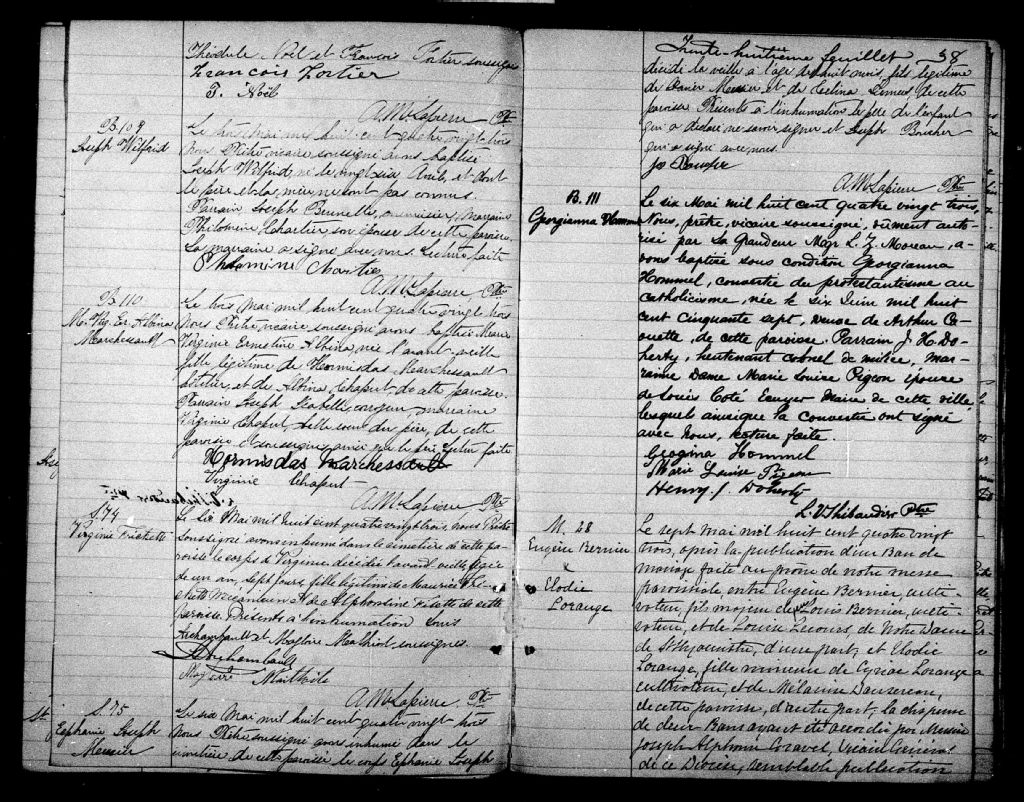 Théodule Noël et François Fortier soussignés
François Fortier
T. Noël
A.M. Lapierre Ptre
B. 109
Joseph Wilfrid
Le trois Mai mil huit cent quatre vingt trois
Nous Prêtre vicaire soussigné avons baptisé
Joseph Wilfrid né le vingt six Avril, et dont
le père et la mère ne sont pas connus.
Parrain Joseph Brunelle, menuisier, marraine
Philomène Chartier, son épouse de cette paroisse.
La marraine a signé avec nous. Lecture faite
Philomine Chartier
A.M. Lapierre, Ptre
B. 110
M. Virg. Er. Albina
Marchessault
Le trois Mai mil huit cent quatre vingt trois
Nous Prêtre vicaire soussigné avons baptisé Marie
Virginie Ernestine Albina née l'avant-veille
fille légitime de Hormisdas Marchessault
sellier, et de Albina Chapert, de cette paroisse.
Parrain Joseph Isabelle, marraine
Virginie Chapert, belle soeur du père, de cette
paroisse et soussignée ainsi que le père. Lecture faite
Hormisdas Marchessault
Virginie Chapert
A.M. Lapierre Ptre
S. 74
Virginie Frichette
Le six Mai mil huit cent quatre vingt trois, nous Prêtre
soussigné avons inhumé dans le cimetière de cette pa-
roisse le corps de Virginie décédée l'avant veille, agée
de un an, sept jours, fille légitime de Maurice
de Alphonsine de cette
paroisse. Présents à l'inhumation Louis
Archambault et Magloire Mathieu soussignés.
Archambault
Magloire
A.M. Lapierre Ptre
S. 75
Ephanie Joseph
Messier
Le six Mai mil huit cent quatre vingt trois
Nous Prêtre soussigné avons inhumé dans le
cimetière de cette paroisse le corps Ephanie Joseph
Trente-huitième feuillet 38
décédé la veille à l'âge de huit mois, fils légitime
de Xavier Messier, et de de cette
paroisse Présents à l'inhumation le père de l'enfant
qui a déclaré ne savoir signer et Joseph
qui a signé avec nous.
A.M. Lapierre Ptre
B. 111
Georgianna Hommel
Le six Mai mil huit cent quatre vingt trois,
Nous, prêtre, vicaire soussigné, dûment auto-
risé par Sa Grandeur Mgr L. Z. Moreau, a-
vons baptisé sous condition Georgianna
Hommel, convertie du protestantisme au
catholicisme, née le six Juin mil huit
cent cinquante sept, veuve de Arthur Ca-
ouette, de cette paroisse. Parrain J. H. Do-
herty, lieutenant colonel de milice, mar-
raine Dame Marie Louise Pigeon épouse
de Louis Coté Ecuyer Maire de cette ville,
lesquels ainsique la convertie ont signé
avec Nous, lecture faite.
Georgina Hommel
Marie Louise Pigeon
Henry J. Doherty
L. V. Thibaudier Ptre
M. 28
Eugène Bernier
&
Elodie
Lorange
Le sept Mai mil huit cent quatre vingt
trois, après la publication d'un Ban de
mariage faite au prône de notre messe
paroissiale, entre Eugène Bernier, culti-
vateur, fils majeur de Louis Bernier, culti-
vateur, et de Louise Lecours, de Notre Dame
de St Hyacinthe, d'une part; et Elodie
Lorange, fille mineure de Cyriac Lorange
cultivateur, et de Mélanise Dansereau,
de cette paroisse, d'autre part. La dispense
de deux Bans ayant été accordée par Messire
Joseph Alphonse Gravel, Vicaire Général
de ce Diocèse, semblable publication